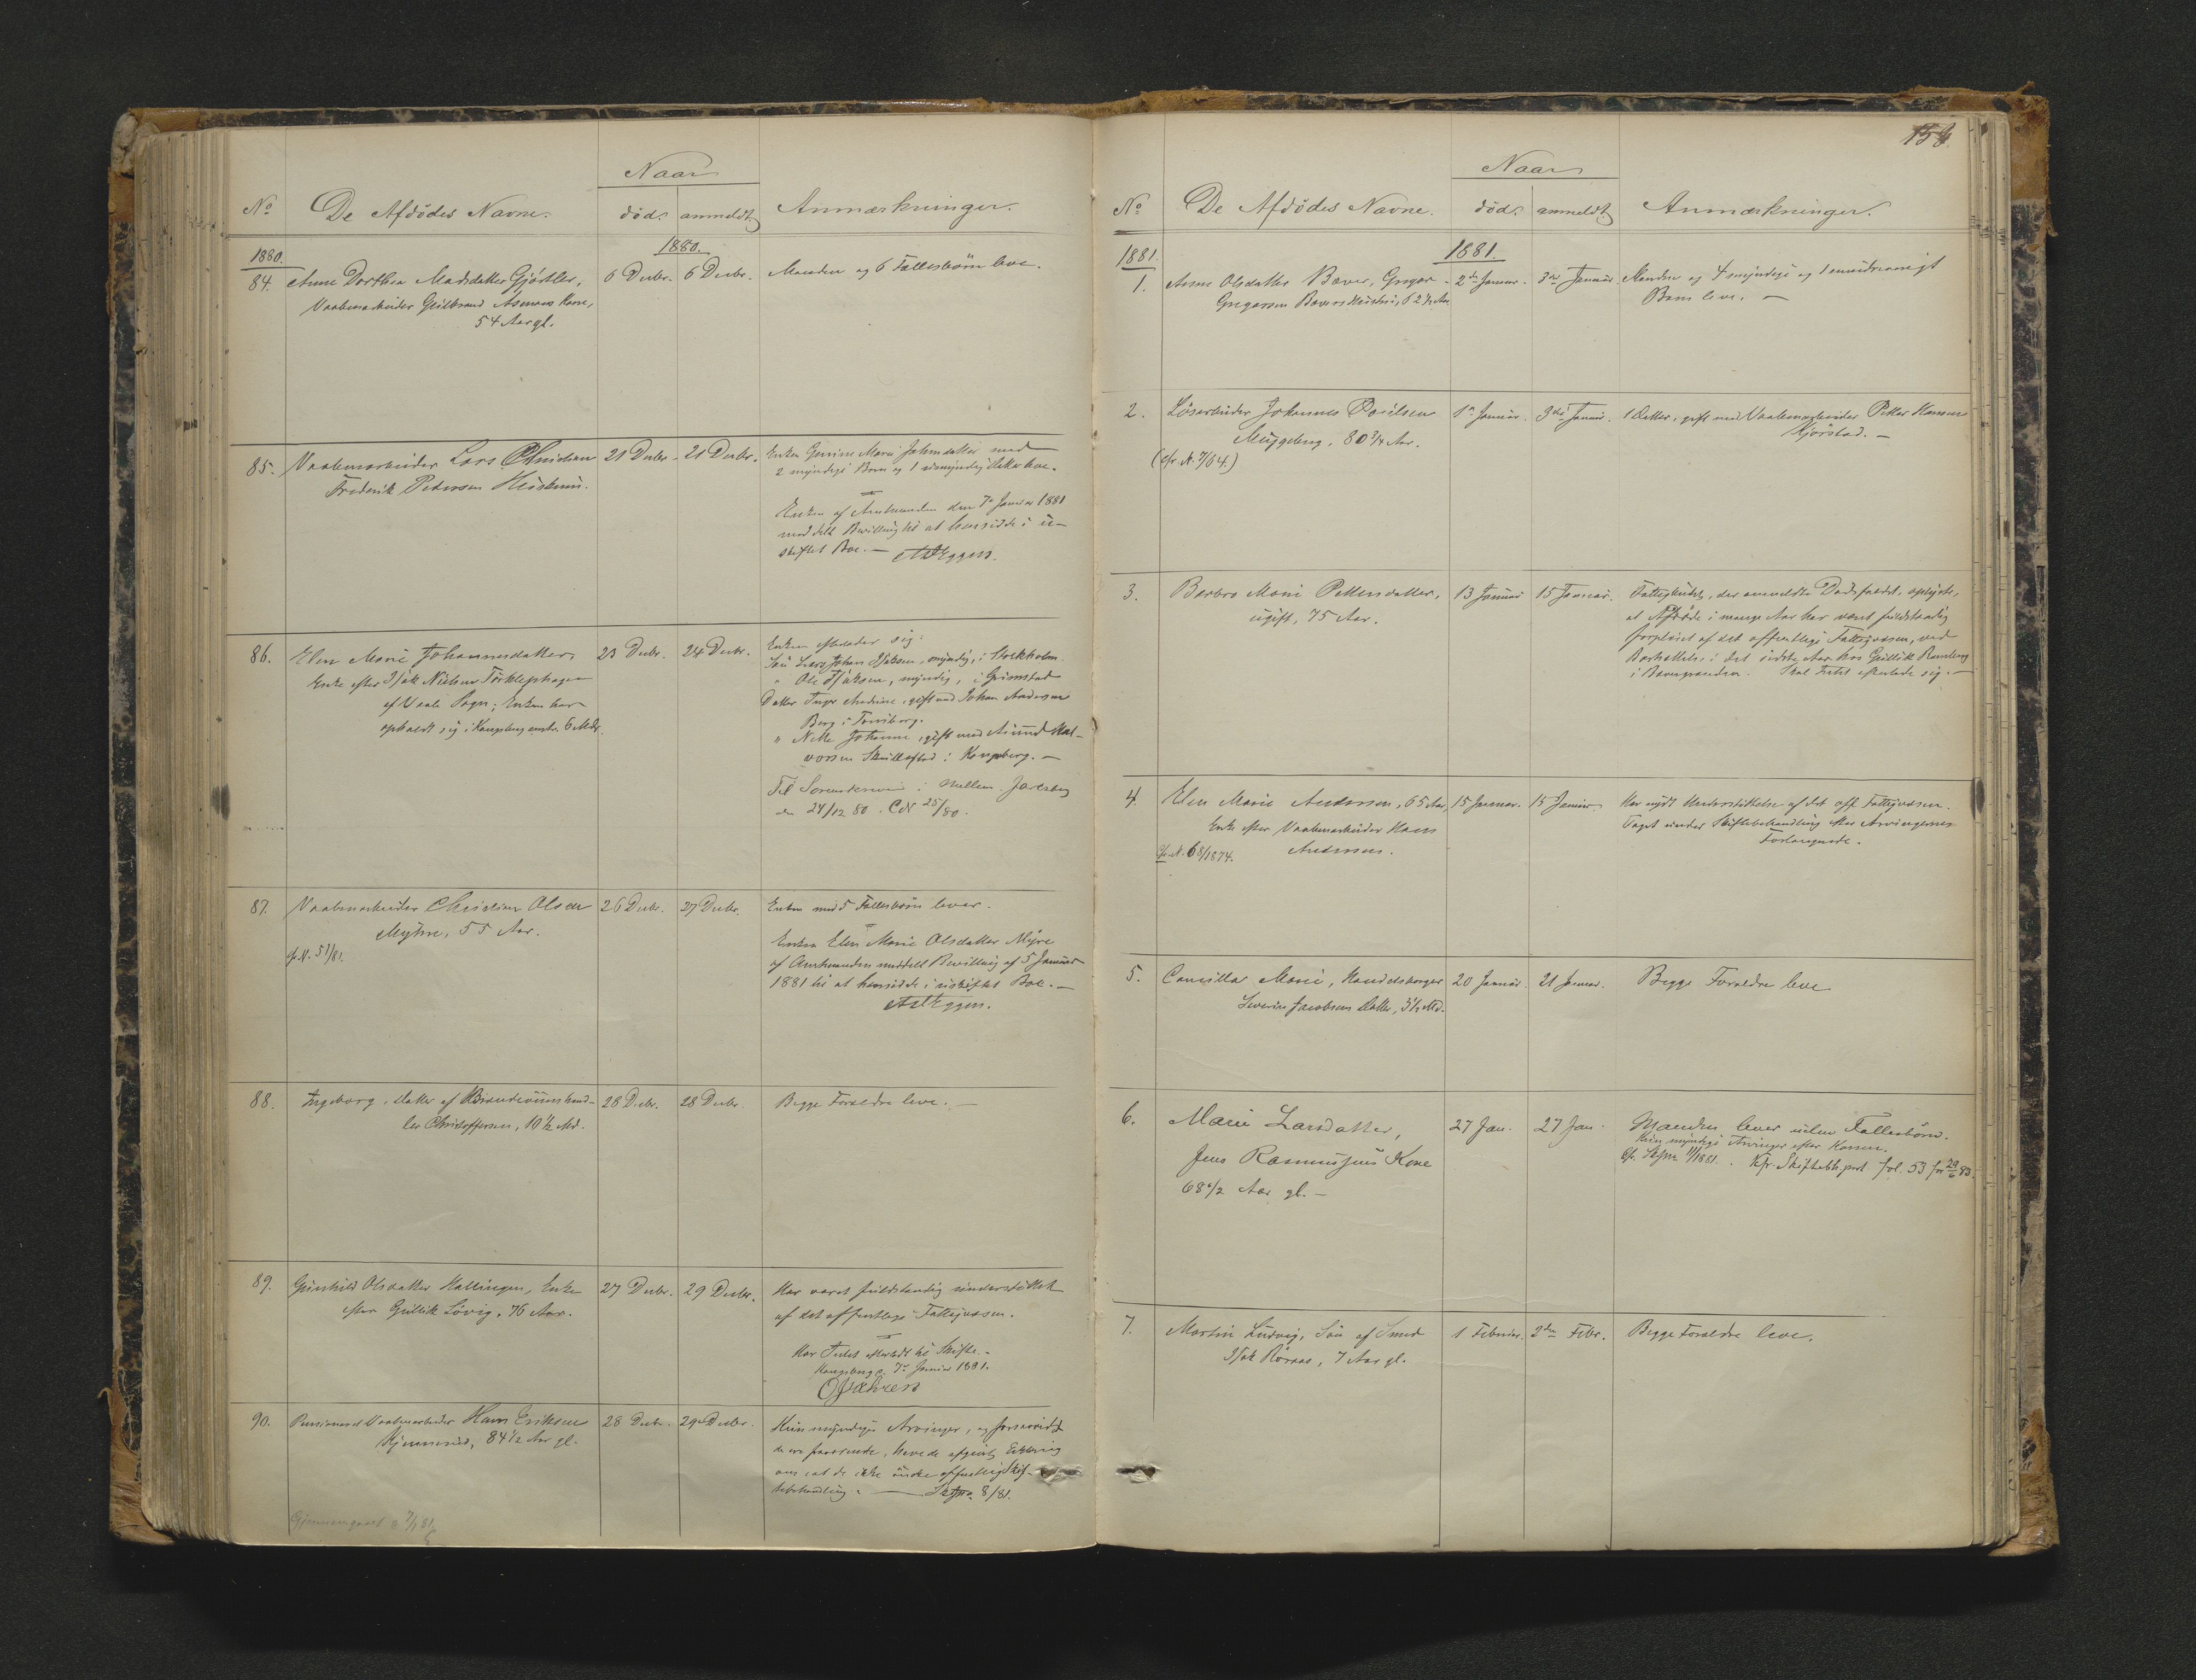 Naar
No De Afdödes Navne. död. anmeldt Anmærkninger.
1880. 1880.
84. Anne Dorthea Madsdatter Gjötler, 6 Decbr. 6 Decbr. Manden og 6 Fællesbörn leve.
Vaabenarbeider Gulbrand Asmans Kone,
54 Aar gl.
85. Vaabenarbeider Lars Christian 21 Decbr. 21 Decbr. Enken Marie Johnsdatter med
Frederik Petersen 2 myndige Børn og 1 umyndig Datter leve.
Enken af Amtmanden den 7de Januar 1881
meddelt Bevilling til at hensidde i u-
skiftet Boe. —
86. Elen Marie Johannesdatter, 23 Decbr. 24 Decbr. Enken efterlader sig:
Enke efter Isak Nielsen Törklephagen Sön Lars Johan Isaksen, myndig, i Stockholm
af Vaale Sogn; Enken har " Ole Isaksen, myndig, i Grimstad
opholdt sig i Kongsberg omtr. 6 Mdr. Datter Inger Andrine, gift med Johan Andersen
Berg i Tönsberg.
" Nille Johanne, gift med Amund Hal-
vorsen Skullestad i Kongsberg. —
Til Sorenskriveren i Mellem Jarlsberg
den 24/12 80. CN 25/80.
87. Vaabenarbeider Christian Olsen 26 Decbr. 27 Decbr. Enken med 5 Fællesbörn lever.
Myhre, 55 Aar.
cfr. N. 51/81. Enken Elen Marie Olsdatter Myre
af Amtmanden meddelt Bevilling af 5 Januar
1881 til at hensidde i uskiftet Boe. —
88. Ingeborg, datter af Brændeviinshand- 28 Decbr. 28 Decbr. Begge Forældre leve. —
ler Christoffersen, 10 1/2 Md.
89. Gunhild Olsdatter Hallingen, Enke 27 Decbr. 29 Decbr. Har været fuldstændig understöttet
efter Gullik Lövig, 76 Aar. af det offentlige Fattigvæsen.
Har Intet efterladt til Skifte. —
Kongsberg 7de Januar 1881.
90. Pensioneret Vaabenarbeider Hans Eriksen 28 Decbr. 29 Decbr. Kun myndige Arvinger, og forsaavidt
84 1/2 Aar gl. de ere fraværende, have de afgivet Erklæring
om, at de ikke önske offentlig Skif-
tebehandling. — 8/81.
Gjennemgaaet
153.
Naar
No De Afdödes Navne. död. anmeldt Anmærkninger.
1881. 1881.
1. Anne Olsdatter Bæver, Gregar 2den Januar. 3die Januar. Manden og 4 myndige og 1 umyndigt
Gregarsen Bævers Hustru, 62 1/2 Aar Barn leve. —
2. Lösarbeider Johannes Poulsen 1ste Januar. 3die Januar. 1 Datter, gift med Vaabenarbeider Petter Hansen
Muggeberg, 80 3/4 Aar. Kjörstad. —
(cfr. N. 7/64.)
3. Barbro Marie Pettersdatter, 13 Januar 15 Januar. Fattigbudet, der anmeldte Dödsfaldet, oplyste,
ugift, 75 Aar. at Afdöde i mange Aar har været fuldstændig
forpleiet af det offentlige Fattigvæsen, ved
Bortsættelse i det sidste Aar hos Gullik Ramberg
Skal Intet efterlade sig. —
4. Elen Marie Andersen, 65 Aar, 15 Januar. 15 Januar Har nydt Understöttelse af det off. Fattigvæsen.
Enke efter Vaabenarbeider Hans Taget under Skiftebehandling efter Arvingernes
Cfr. N. 68/1874. Andersen. Forlangende.
5. Camilla Marie, Handelsborger 20 Januar. 21 Januar. Begge Forældre leve
Severin Jacobsens Datter, 3 1/2 Md.
6. Marie Larsdatter, 27 Jan. 27 Jan. Manden lever uden Fællesbörn.
Jens Rasmussens Kone Kun myndige Arvinger efter Konen.
68 1/2 Aar gl. — Cfr. 11/1881. Kfr. Skiftebh.prot fol. 53 for 29/6 83.
7. Martin Ludvig, Sön af Smed 1 Februar. 2den Febr. Begge Forældre leve.
Isak Röraas, 7 Aar gl.